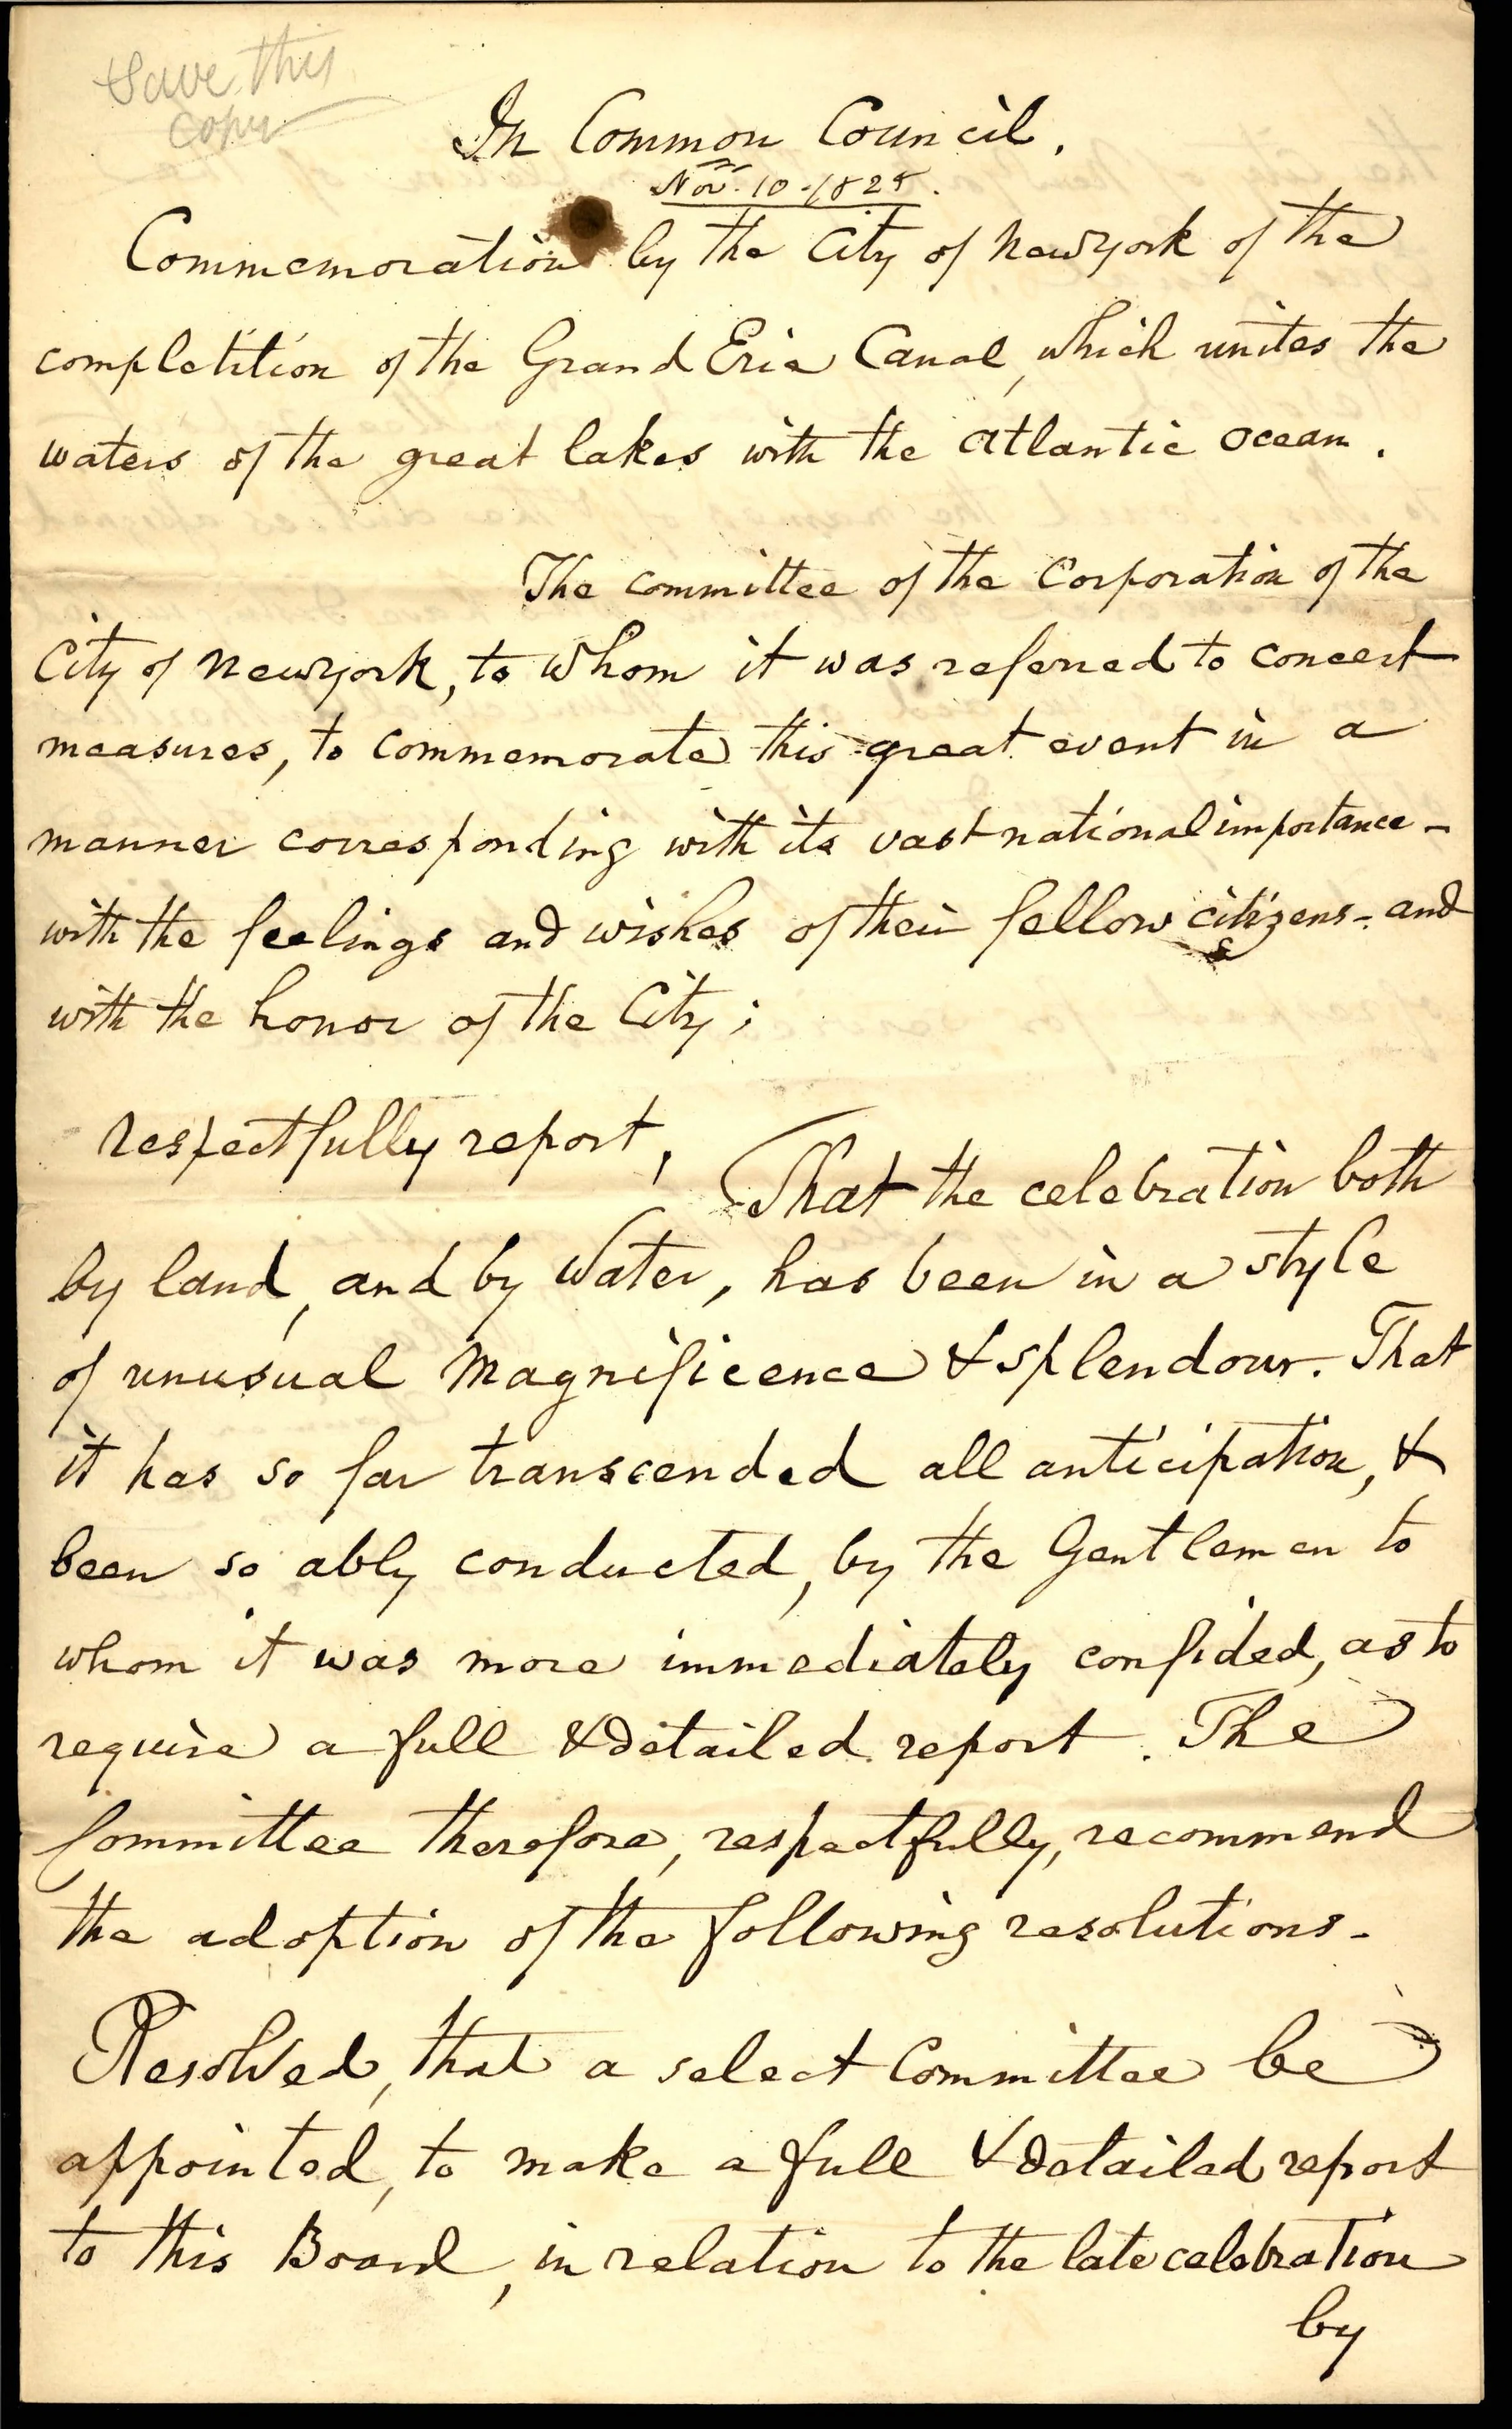 Save this
copy
In Common Council.
Nov. 10 - 1825.
Commemoration by the City of Newyork of the
completition of the Grand Erie Canal, which unites the
waters of the great lakes with the atlantic ocean.
The committee of the Corporation of the
City of Newyork, to whom it was referred to concert
measures, to commemorate this great event in a
manner corresponding with its vast national importance -
with the feelings and wishes of their fellow citizens - and
with the honor of the City;
respectfully report,
That the celebration both
by land, and by Water, has been in a style
of unusual Magnificence & splendour. That
it has so far transcended all anticipation, &
been so ably conducted, by the Gentlemen to
whom it was more immediately confided, as to
require a full & detailed report. The
Committee therefore, respectfully, recommend
the adoption of the following resolutions.
Resolved, that a select Committee be
appointed, to make a full & detailed report
to this Board, in relation to the late celebration
by